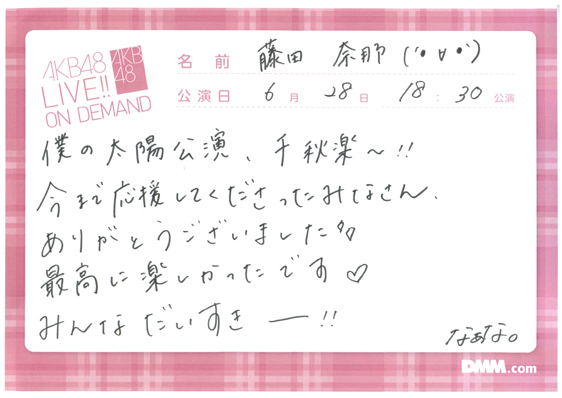 AKB48
LIVE!!
ON DEMAND
AKB
48
名前 藤田 奈那 ('●∀●')
公演日 6月 28日 18:30 公演
僕の太陽公演、千秋楽〜!!
今まで応援してくださったみなさん、
ありがとうございました
最高に楽しかったです♡
みんなだいすきー!!
なぁな。
DMM.com